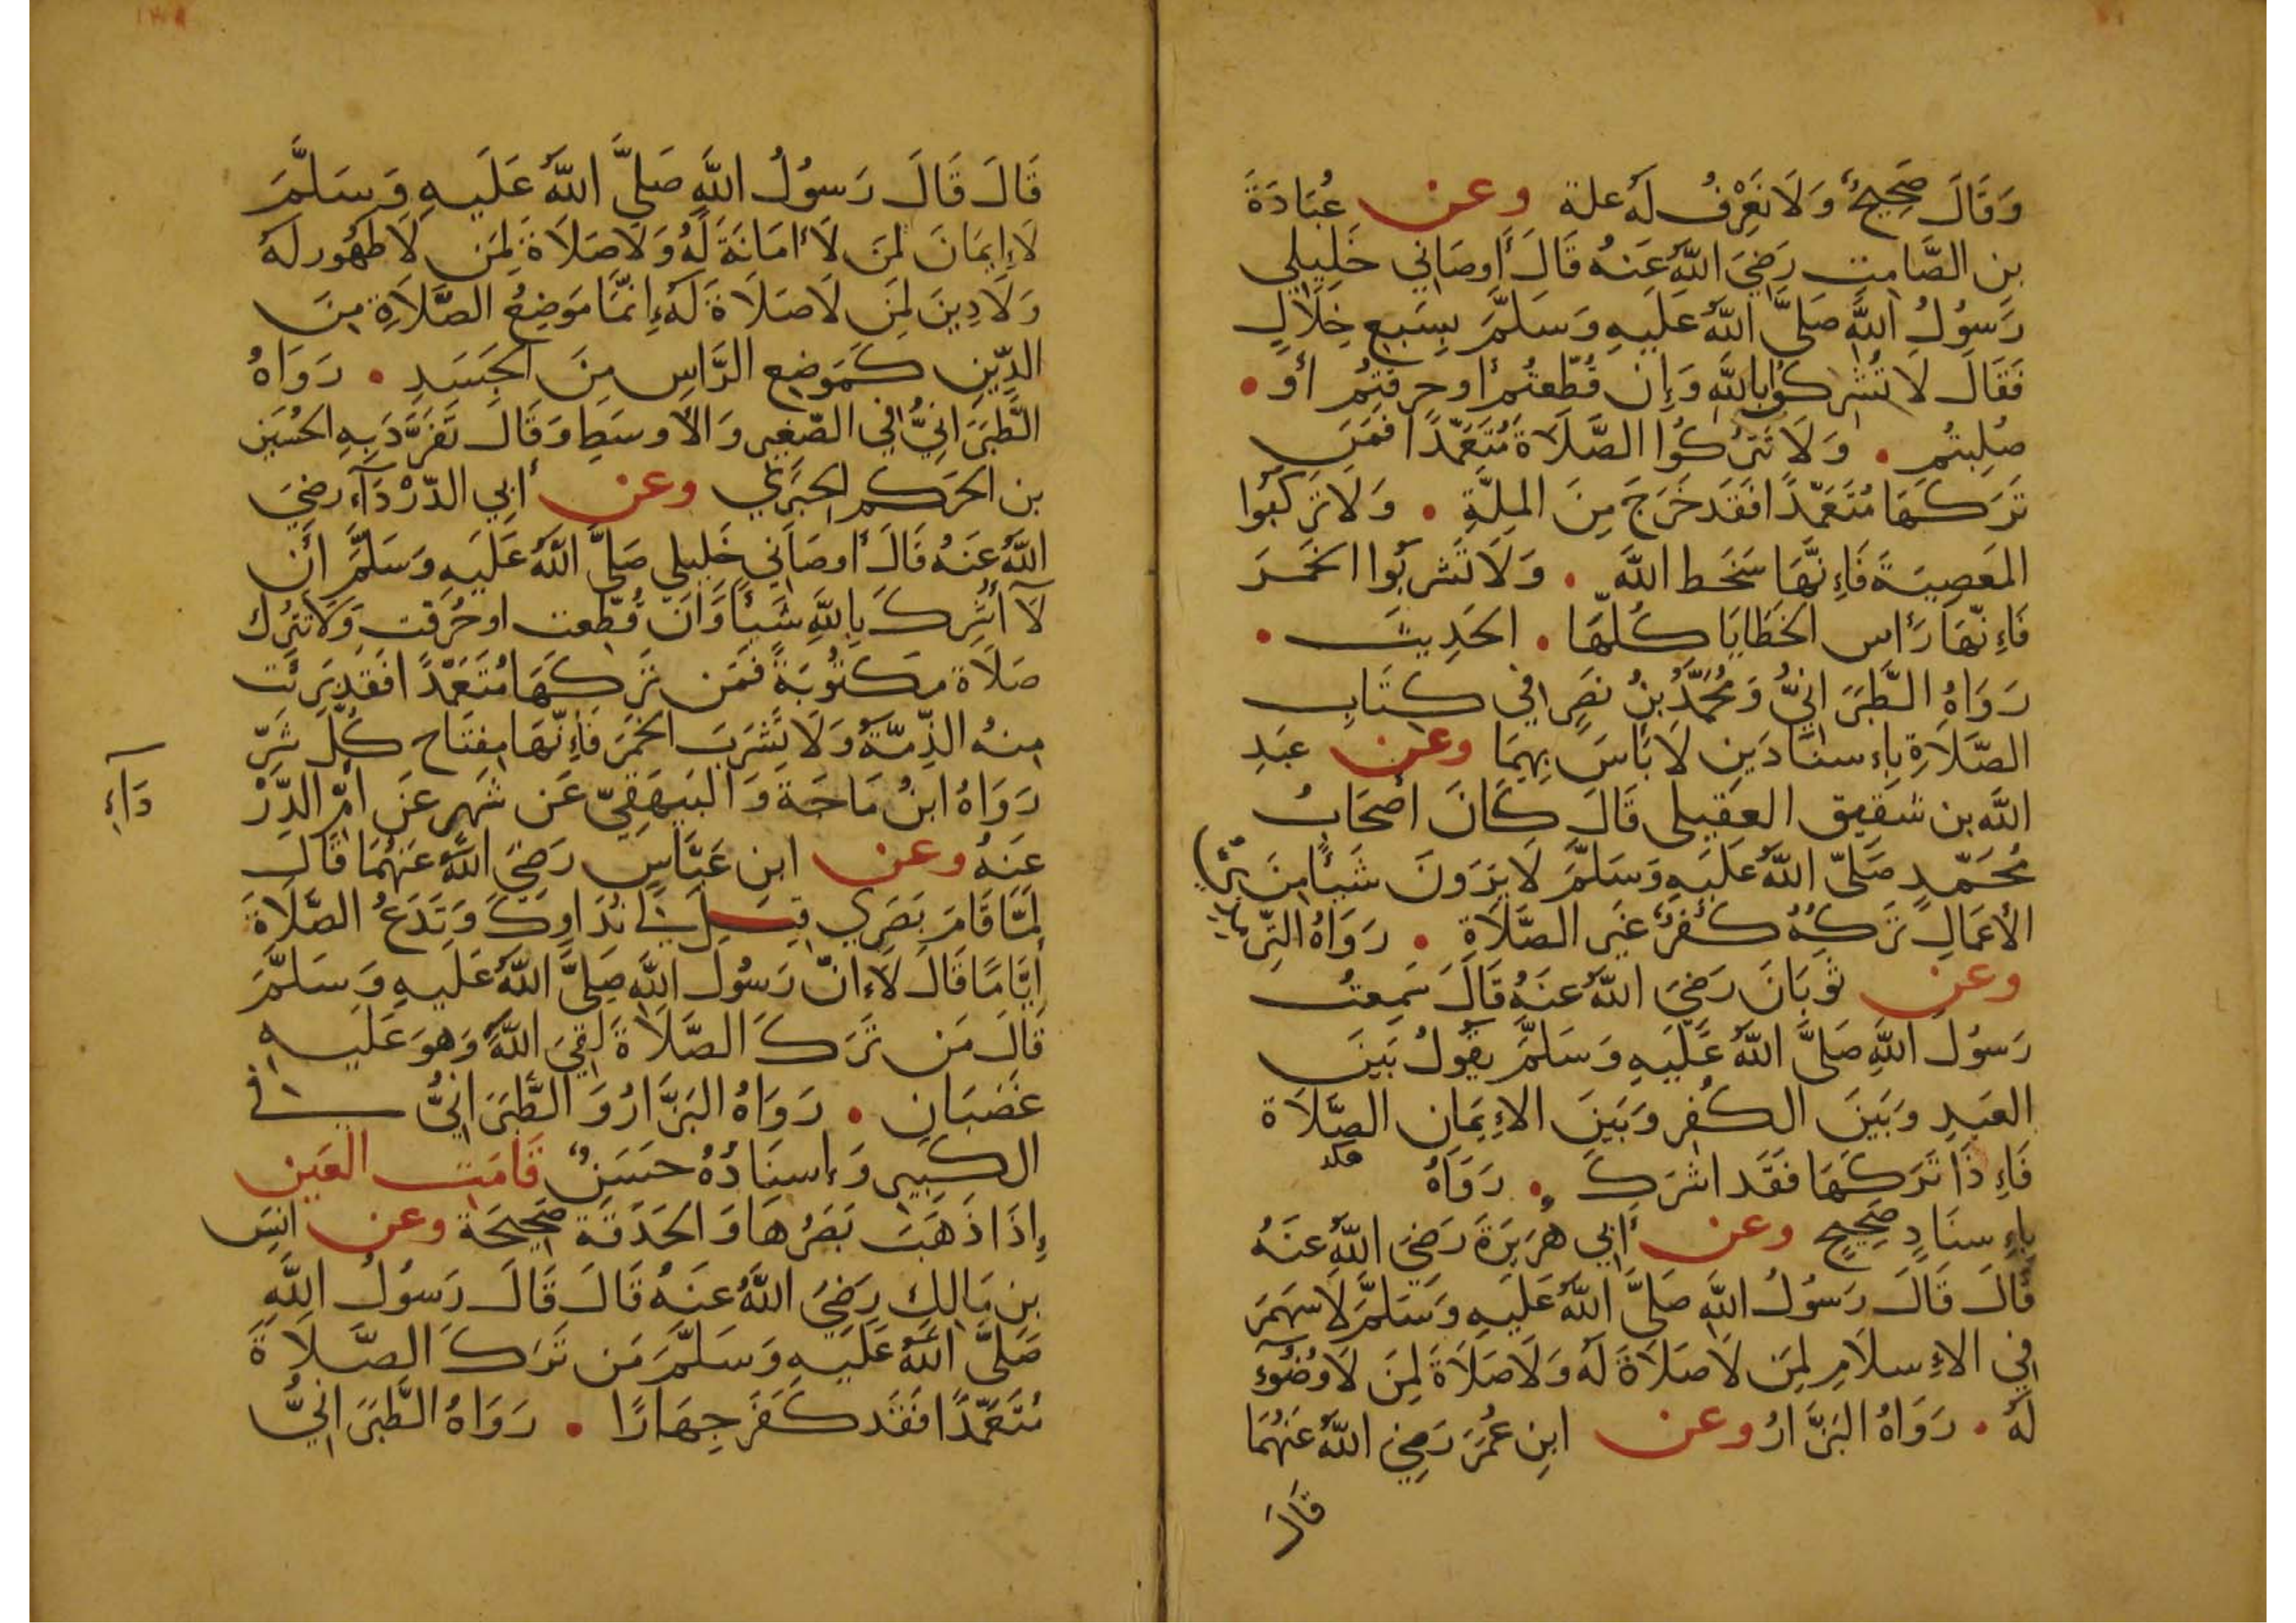 وَقَالَ صَحِيحٌ وَلَا نَعْرِفُ لَهُ علة وعن عُبَادَةَ
بن الصَّامِتِ رَضِيَ اللَّهُ عَنهُ قَالَ أَوصَانِي خَلِيلِي
رَسُولُ اللَّهِ صَلَّى اللَّهُ عَلَيهِ وَسَلَّمَ بِسَبعِ خِلَالٍ
فَقَالَ لَا تُشرِكُوا بِاللَّهِ وَإِن قُطِّعتُم أو حرقتُم أَو •
صُلِبتُم • وَلَا تَترُكُوا الصَّلَاةَ مُتَعَمِّدًا فَمَن
تَرَكَهَا مُتَعَمِّدًا فَقَد خَرَجَ مِنَ المِلَّةِ • وَلَا تَركَبُوا
المَعصِيَةَ فَإِنَّهَا سَخَط اللَّه • وَلَا تَشربُوا الخَمَرَ
فَإِنَّهَا رَأس الخَطَايَا كُلِّهَا • الحَدِيثَ •
رَوَاهُ الطَّبَرَانِيُّ وَمُحَمَّدُ بنُ نَصرٍ فِي كِتَابِ
الصَّلَاةِ بِإِسنَادَينِ لَا بَأسَ بِهِمَا وعن عَبدِ
اللَّه بن شَقِيق العقيلى قَالَ كَانَ أَصحَابُ
مُحَمَّدٍ صَلَّى اللَّهُ عَلَيهِ وَسَلَّمَ لَا يَرَونَ شَيئًا مِنَ
الأَعمَالِ تَركُهُ كُفرٌ غَيرَ الصَّلَاةِ • رَوَاهُ التِّرمذي
وعن ثَوبَانَ رَضِيَ اللَّهُ عَنهُ قَالَ سَمِعتُ
رَسُولَ اللَّهِ صَلَّى اللَّهُ عَلَيهِ وَسَلَّمَ يَقُولُ بَينَ
العَبدِ وَبَينَ الكُفرِ وَبَينَ الإِيمَانِ الصَّلَاة
فَإِذَا تَرَكَهَا فَقَد اشرَكَ • رَوَاهُ
بِإِسنَادٍ صَحِيحٍ وعن أَبِي هُرَيرَةَ رَضِيَ اللَّهُ عَنهُ
قَالَ قَالَ رَسُولُ اللَّهِ صَلَّى اللَّهُ عَلَيهِ وَسَلَّمَ لَا سَهمَ
فِي الإِسلَامِ لِمَن لَا صَلَاةَ لَهُ وَلَا صَلَاةَ لِمَن لَا وُضُوءَ
لَهُ • رَوَاهُ البَزَّارُ وعن ابنِ عُمَرَ رَضِيَ اللَّهُ عَنهُمَا
قَالَ
قَالَ قَالَ رَسُولُ اللَّهِ صَلَّى اللَّهُ عَلَيهِ وَسَلَّمَ
لَا إِيمَانَ لِمَن لَا أَمَانَةَ لَهُ وَلَا صَلَاةَ لِمَن لَا طَهُور لَهُ
وَلَا دِينَ لِمَن لَا صَلَاةَ لَهُ إِنَّمَا مَوضِعُ الصَّلَاةِ مِنَ
الدِّينِ كَمَوضِعِ الرَّاسِ مِنَ الجَسَدِ • رَوَاهُ
الطَّبَرَانِيُّ فِي الصَّغِيرِ وَالأَوسَطِ وَقَالَ تَفَرَّدَ بِهِ الحُسَين
بن الحَكم الحِبَرِي وعن أَبِي الدَّرْدَآءِ رضِيَ
اللَّهُ عَنهُ قَالَ أَوصَانِي خَلِيلِي صَلَّى اللَّهُ عَلَيهِ وَسَلَّمَ أَن
لَا أُشرِكَ بِاللَّهِ شَيئًا وَان قُطِّعت او حُرِّقت وَلَا تَترُك
صَلَاة مَكتُوبَةً فَمَن تَرَكَهَا مُتَعَمِّدًا فَقَد بَرِئَت
مِنهُ الذِّمَّةُ وَلَا تَشرَبَ الخَمرَ فَإِنَّهَا مِفتَاح كُلِّ شَرٍّ
رَوَاهُ ابنُ مَاجَة وَالبَيهَقِيّ عَن شَهرٍ عَن أُمِّ الدَّرْ
دَآءِ
عَنهُ وعن ابنِ عَبَّاسٍ رَضِيَ اللَّهُ عَنهُمَا قَالَ
لَمَّا قَامَ بَصَرِي قِيلَ نُدَاوِيكَ وَتَدَعُ الصَّلَاةَ
أَيَّامًا قَالَ لَا إِنَّ رَسُولَ اللَّهِ صَلَّى اللَّهُ عَلَيهِ وَسَلَّمَ
قَالَ مَن تَرَكَ الصَّلَاةَ لَقِيَ اللَّهَ وَهوَ عَلَيهِ
غَضبَان • رَوَاهُ البَزَّارُ وَالطَّبَرَانِيُّ فِي
الكَبِيرِ وَإِسنَادُهُ حَسَنٌ قَامَت العَين
إِذَا ذَهَبَ بَصَرُهَا وَالحَدَقَة صَحِيحَة وعن انَس
بنِ مَالِكٍ رَضِيَ اللَّهُ عَنهُ قَالَ قَالَ رَسُولُ اللَّهِ
صَلَّى اللَّهُ عَلَيهِ وَسَلَّمَ مَن تَرَكَ الصَّلَاةَ
مُتَعَمِّدًا فَقَد كَفَرَ جِهَارًا • رَوَاهُ الطَّبَرَانِيُّ